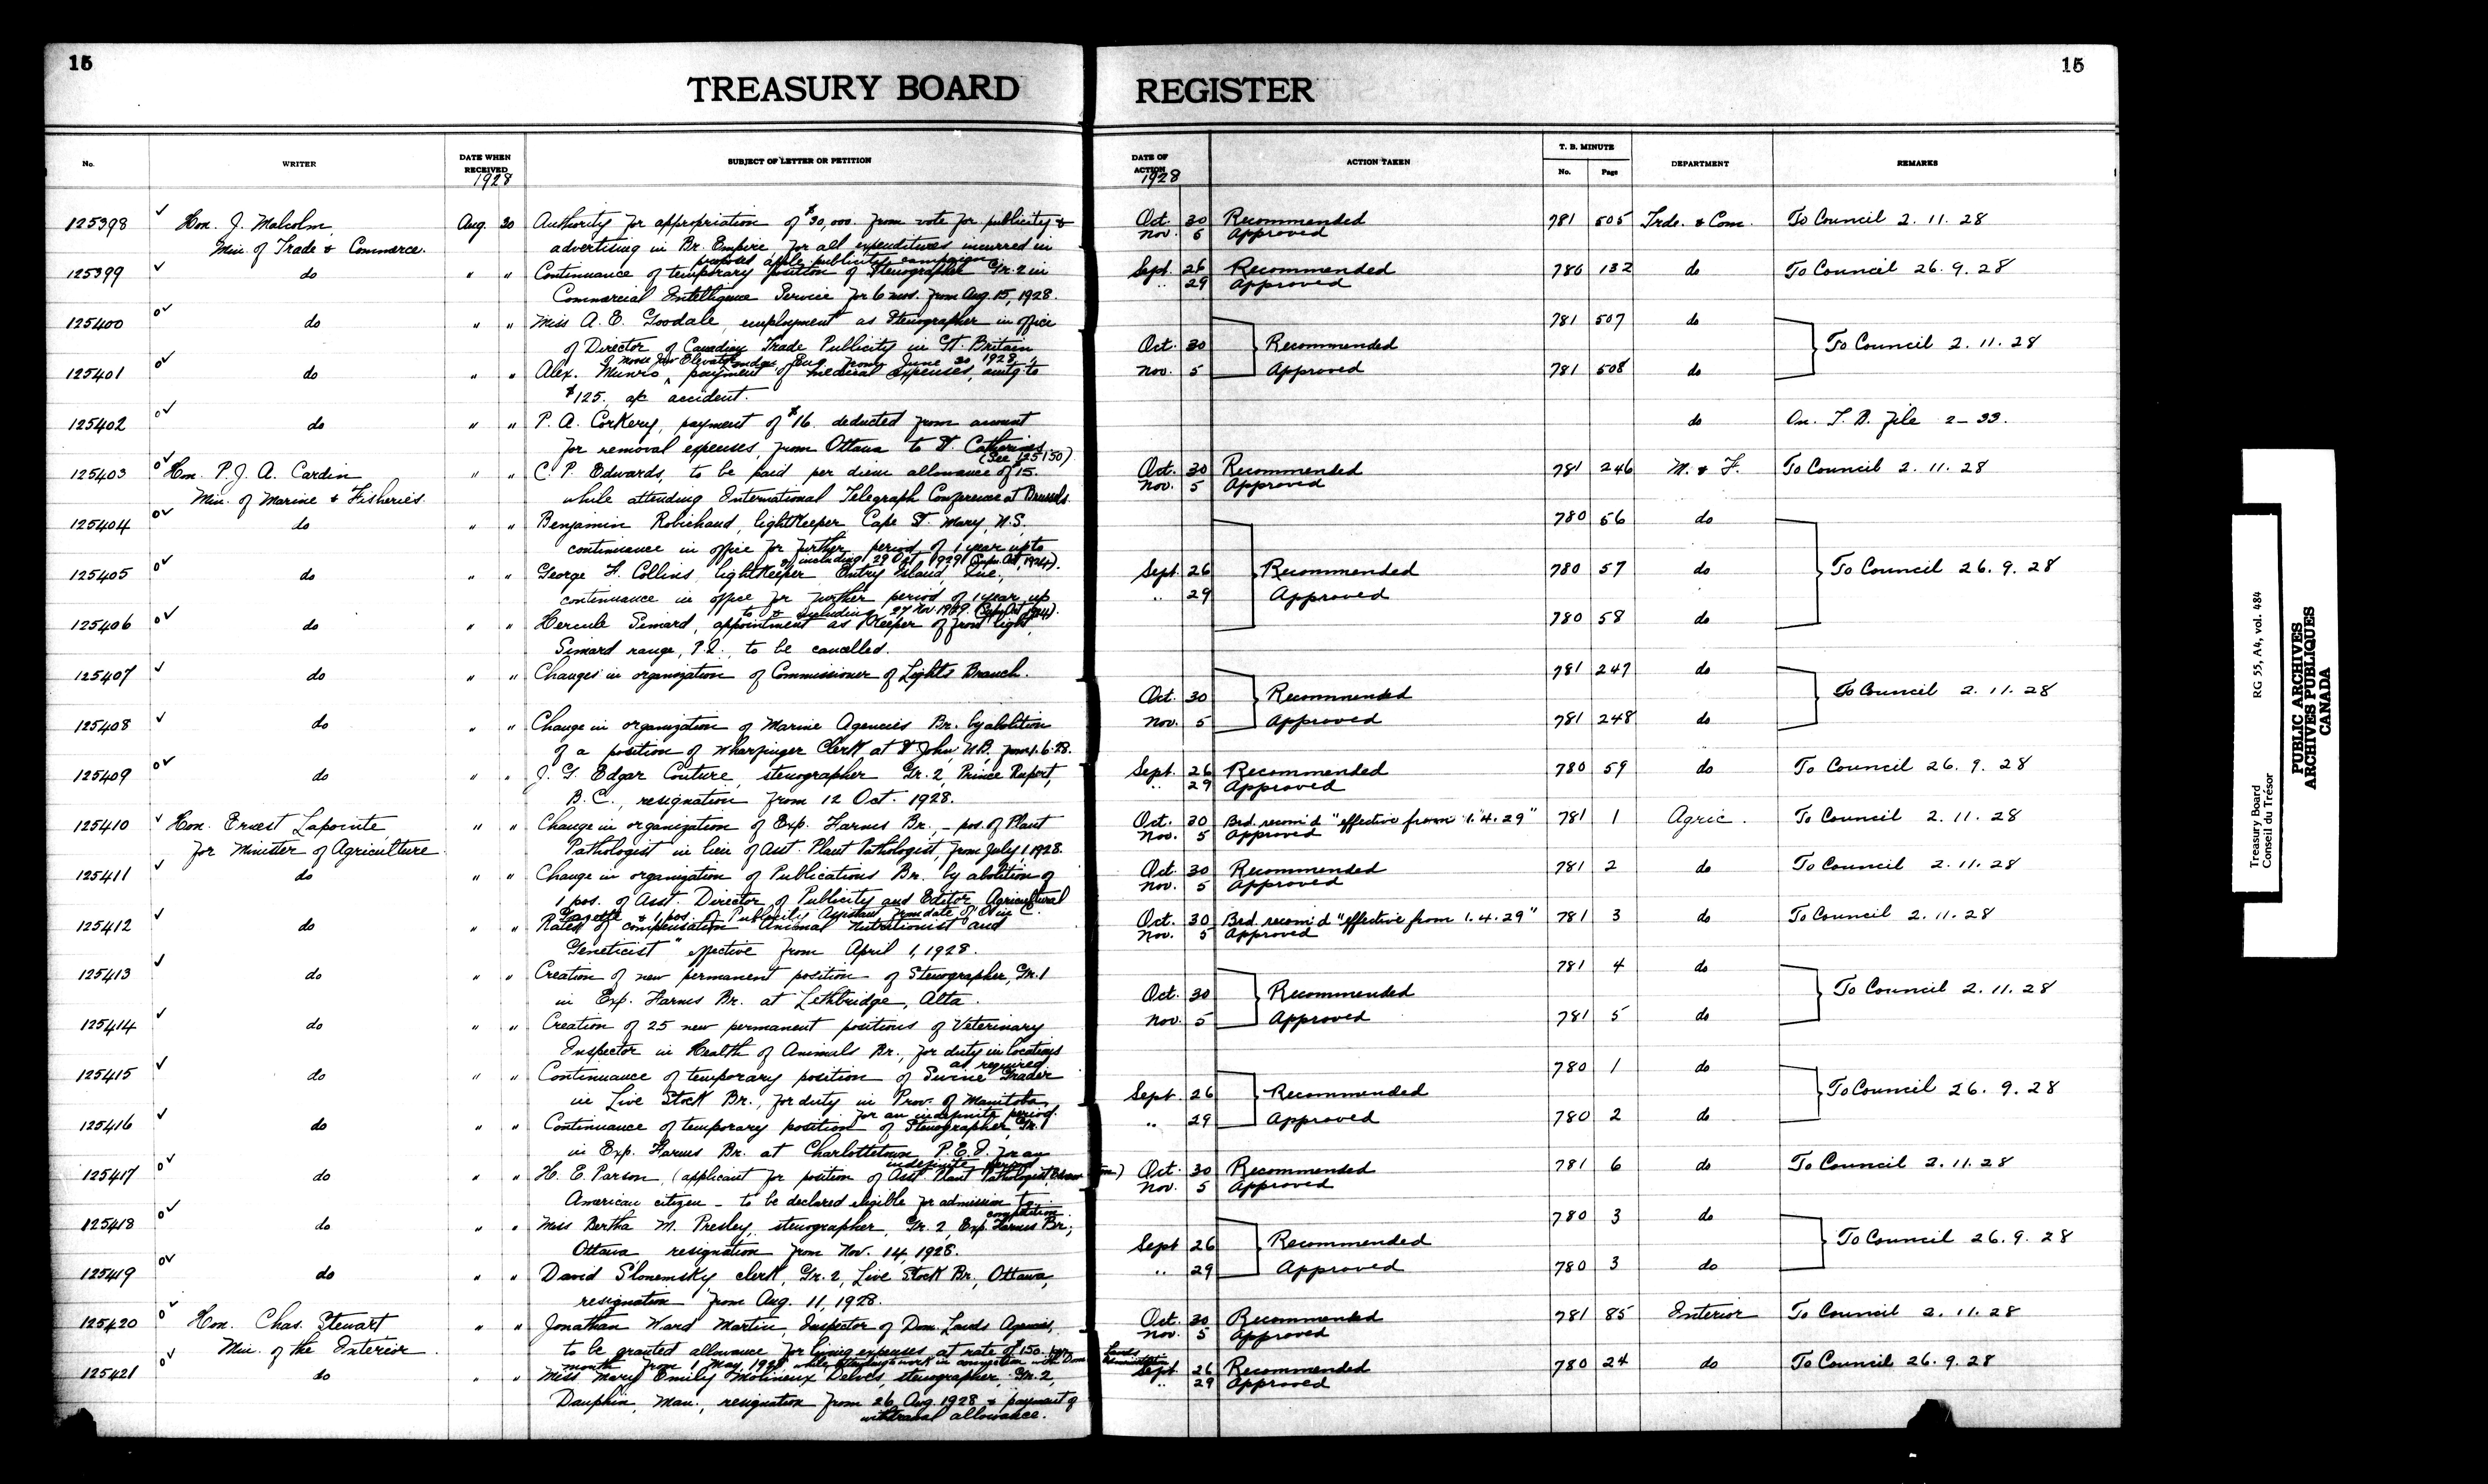 15
TREASURY BOARD
REGISTER
15
No.
WRITER
DATE WHEN RECEIVED
1928
SUBJECT OF LETTER OR PETITION
DATE OF ACTION
1928
ACTION TAKEN
T. B. MINUTE
No.
Page
DEPARTMENT
REMARKS
125398 Hon. J. Malcolm, Aug. 20 Authority for appropriation of $30,000. from vote for publicity & Oct. 30 Recommended 781 505 Trde. & Com. To Council 2.11.28
Min. of Trade & Commerce. advertising in Br. Empire for all expenditures incurred in Nov. 5 Approved
proposed apple publicity campaign
125399 do " " Continuance of temporary position of Stenographer Gr. 2 in Sept. 26 Recommended 780 132 do To Council 26.9.28
Commercial Intelligence Service for 6 mos. from Aug. 15, 1928. " 29 Approved
125400 do " " Miss A. E. Goodale, employment as Stenographer in office 781 507 do
of Director of Canadian Trade Publicity in Gt. Britain Oct. 30 Recommended To Council 2.11.28
London, Eng. from June 20 1928.
125401 do " " Alex. Munro, of Moose Jaw Elevator payment of medical expenses, amtg to Nov. 5 Approved 781 508 do
$125, of accident.
125402 do " " P. A. Corkery, payment of $16. deducted from amount do On T. B. file 2-33.
for removal expenses, from Ottawa to St. Catherines
(See 125150)
125403 Hon. P. J. A. Cardin " " C. P. Edwards, to be paid per diem allowance of $15. Oct. 30 Recommended 781 246 M. & F. To Council 2.11.28
Min. of Marine & Fisheries. while attending International Telegraph Conference at Brussels Nov. 5 Approved
125404 do " " Benjamin Robichaud, lightkeeper Cape St. Mary, N.S. 780 56 do
continuance in office for further period of 1 year up to
& including 29 Oct. 1929 (Supn. Act, 1924).
125405 do " " George F. Collins, lightkeeper Entry Island, Que., Sept. 26 Recommended 780 57 do To Council 26.9.28
continuance in office for further period of 1 year up " 29 Approved
to & including 27 Nov. 1929. (Supn. Act 1924).
125406 do " " Hercule Simard, appointment as Keeper of front light, 780 58 do
Simard range, P.Q., to be cancelled.
125407 do " " Changes in organization of Commissioner of Lights Branch. 781 247 do
Oct. 30 Recommended To Council 2.11.28
125408 do " " Change in organization of Marine Agencies Br. by abolition Nov. 5 Approved 781 248 do
of a position of Wharfinger Clerk at St. John, N.B, from 1.6.28.
125409 do " " J. G. Edgar Couture, stenographer Gr. 2, Prince Rupert, Sept. 26 Recommended 780 59 do To Council 26.9.28
B. C., resignation from 12 Oct. 1928. " 29 Approved
125410 Hon. Ernest Lapointe " " Change in organization of Exp. Farms Br., - pos. of Plant Oct. 30 Brd. recom'd "effective from 1.4.29" 781 1 Agric. To Council 2.11.28
for Minister of Agriculture Pathologist in lieu of Asst. Plant Pathologist, from July 1, 1928. Nov. 5 Approved
125411 do " " Change in organization of Publications Br. by abolition of Oct. 30 Recommended 781 2 do To Council 2.11.28
1 pos. of Asst. Director of Publicity and Editor Agricultural Nov. 5 Approved
Gazette & 1 pos. of Publicity Assistant from date of O in C.
125412 do " " Rates of compensation "Animal Nutritionist and Oct. 30 Brd. recom'd "effective from 1.4.29" 781 3 do To Council 2.11.28
Geneticist" effective from April 1, 1928. Nov. 5 Approved
125413 do " " Creation of new permanent position of Stenographer, Gr. 1 781 4 do
in Exp. Farms Br. at Lethbridge, Alta. Oct. 30 Recommended To Council 2.11.28
125414 do " " Creation of 25 new permanent positions of Veterinary Nov. 5 Approved 781 5 do
Inspector in Health of Animals Br., for duty in locations
as required
125415 do " " Continuance of temporary position of Swine Grader 780 1 do
in Live Stock Br., for duty in Prov. of Manitoba, Sept. 26 Recommended To Council 26.9.28
for an indefinite period.
125416 do " " Continuance of temporary position of Stenographer, Gr. 1 " 29 Approved 780 2 do
in Exp. Farms Br. at Charlottetown P.E.I. for an
indefinite period
125417 do " " H. E. Parson, (applicant for position of Asst. Plant Pathologist, Oct. 30 Recommended 781 6 do To Council 2.11.28
American citizen - to be declared eligible for admission to Nov. 5 Approved
competition.
125418 do " " Miss Bertha M. Presley, stenographer, Gr. 2, Exp. Farms Br., 780 3 do
Ottawa resignation from Nov. 14, 1928. Sept 26 Recommended To Council 26.9.28
125419 do " " David Slonemsky, clerk, Gr. 2, Live Stock Br., Ottawa, " 29 Approved 780 3 do
resignation from Aug. 11, 1928.
125420 Hon. Chas. Stewart " " Jonathan Ward Martin, Inspector of Dom. Lands Agencies, Oct. 30 Recommended 781 85 Interior To Council 2.11.28
Min. of the Interior. to be granted allowance for living expenses at rate of $150. per Nov. 5 Approved
month from 1 May, 1928 while attending to work in connection with Dom. Lands Administration
125421 do " " Miss Mary Emily Molineux Delves, stenographer, Gr. 2, Sept 26 Recommended 780 24 do To Council 26.9.28
Dauphin, Man., resignation from 26 Aug. 1928 & payment of " 29 Approved
withdrawal allowance.
Treasury Board RG 55, A4, vol. 484
Conseil du Trésor
PUBLIC ARCHIVES
ARCHIVES PUBLIQUES
CANADA